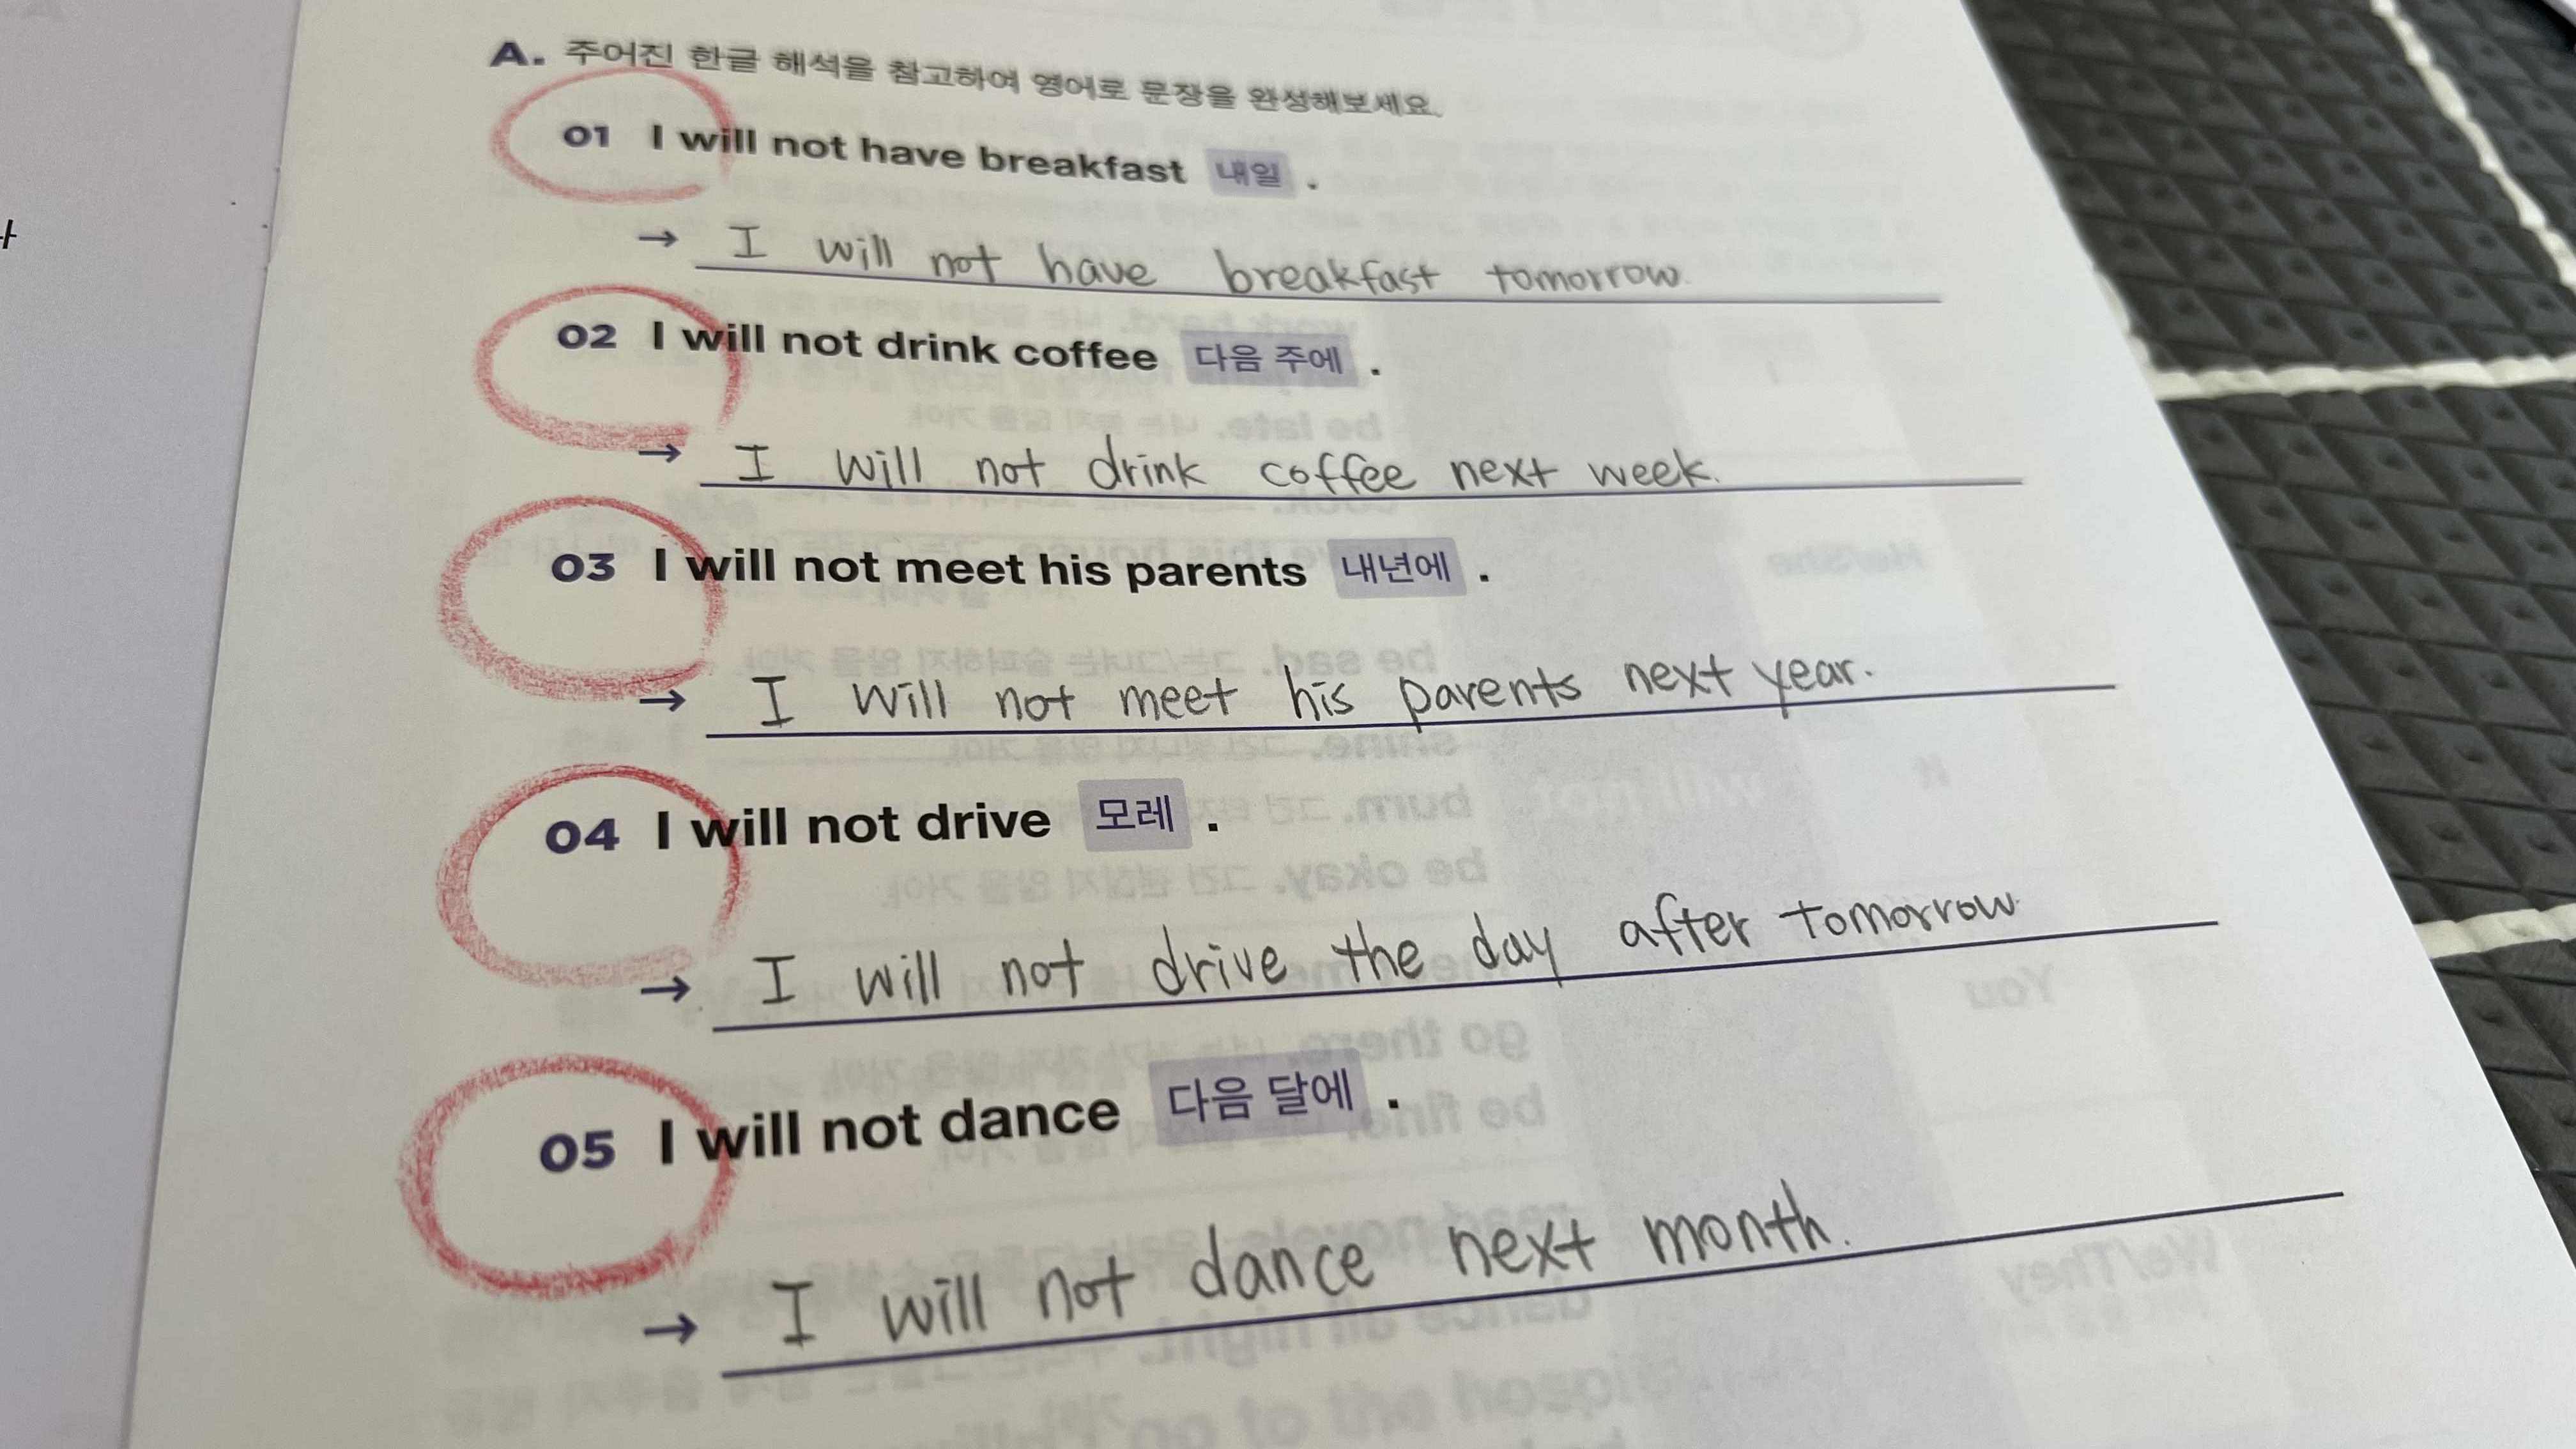 A. 주어진 한글 해석을 참고하여 영어로 문장을 완성해보세요.
01 I will not have breakfast 내일 .
→ I will not have breakfast tomorrow.
02 I will not drink coffee 다음 주에 .
→ I will not drink coffee next week.
03 I will not meet his parents 내년에 .
→ I will not meet his parents next year.
04 I will not drive 모레 .
→ I will not drive the day after tomorrow.
05 I will not dance 다음 달에 .
→ I will not dance next month.